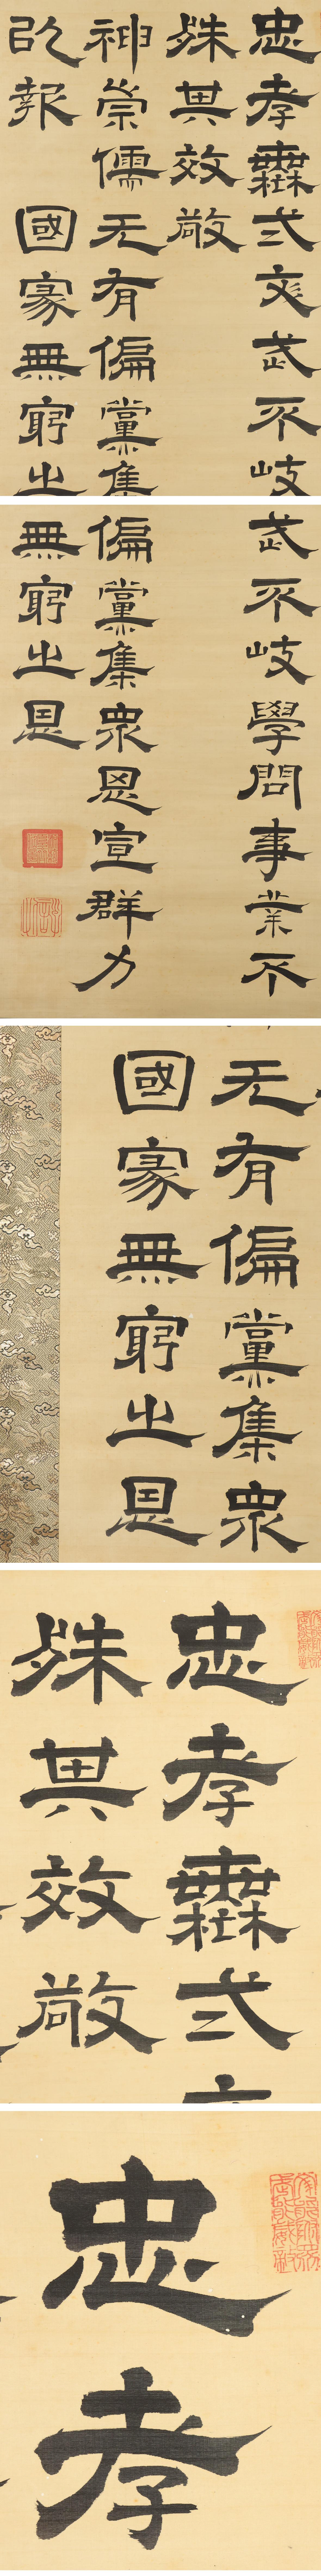 忠孝無弍文武不岐
殊其效敬
神崇儒无有偏黨集
㠯報
國家無窮之
武不岐學問事業不
偏黨集衆思宣群力
無窮之恩
无有偏黨集衆
國家無窮之恩
忠孝無弍
殊其效敬
忠孝